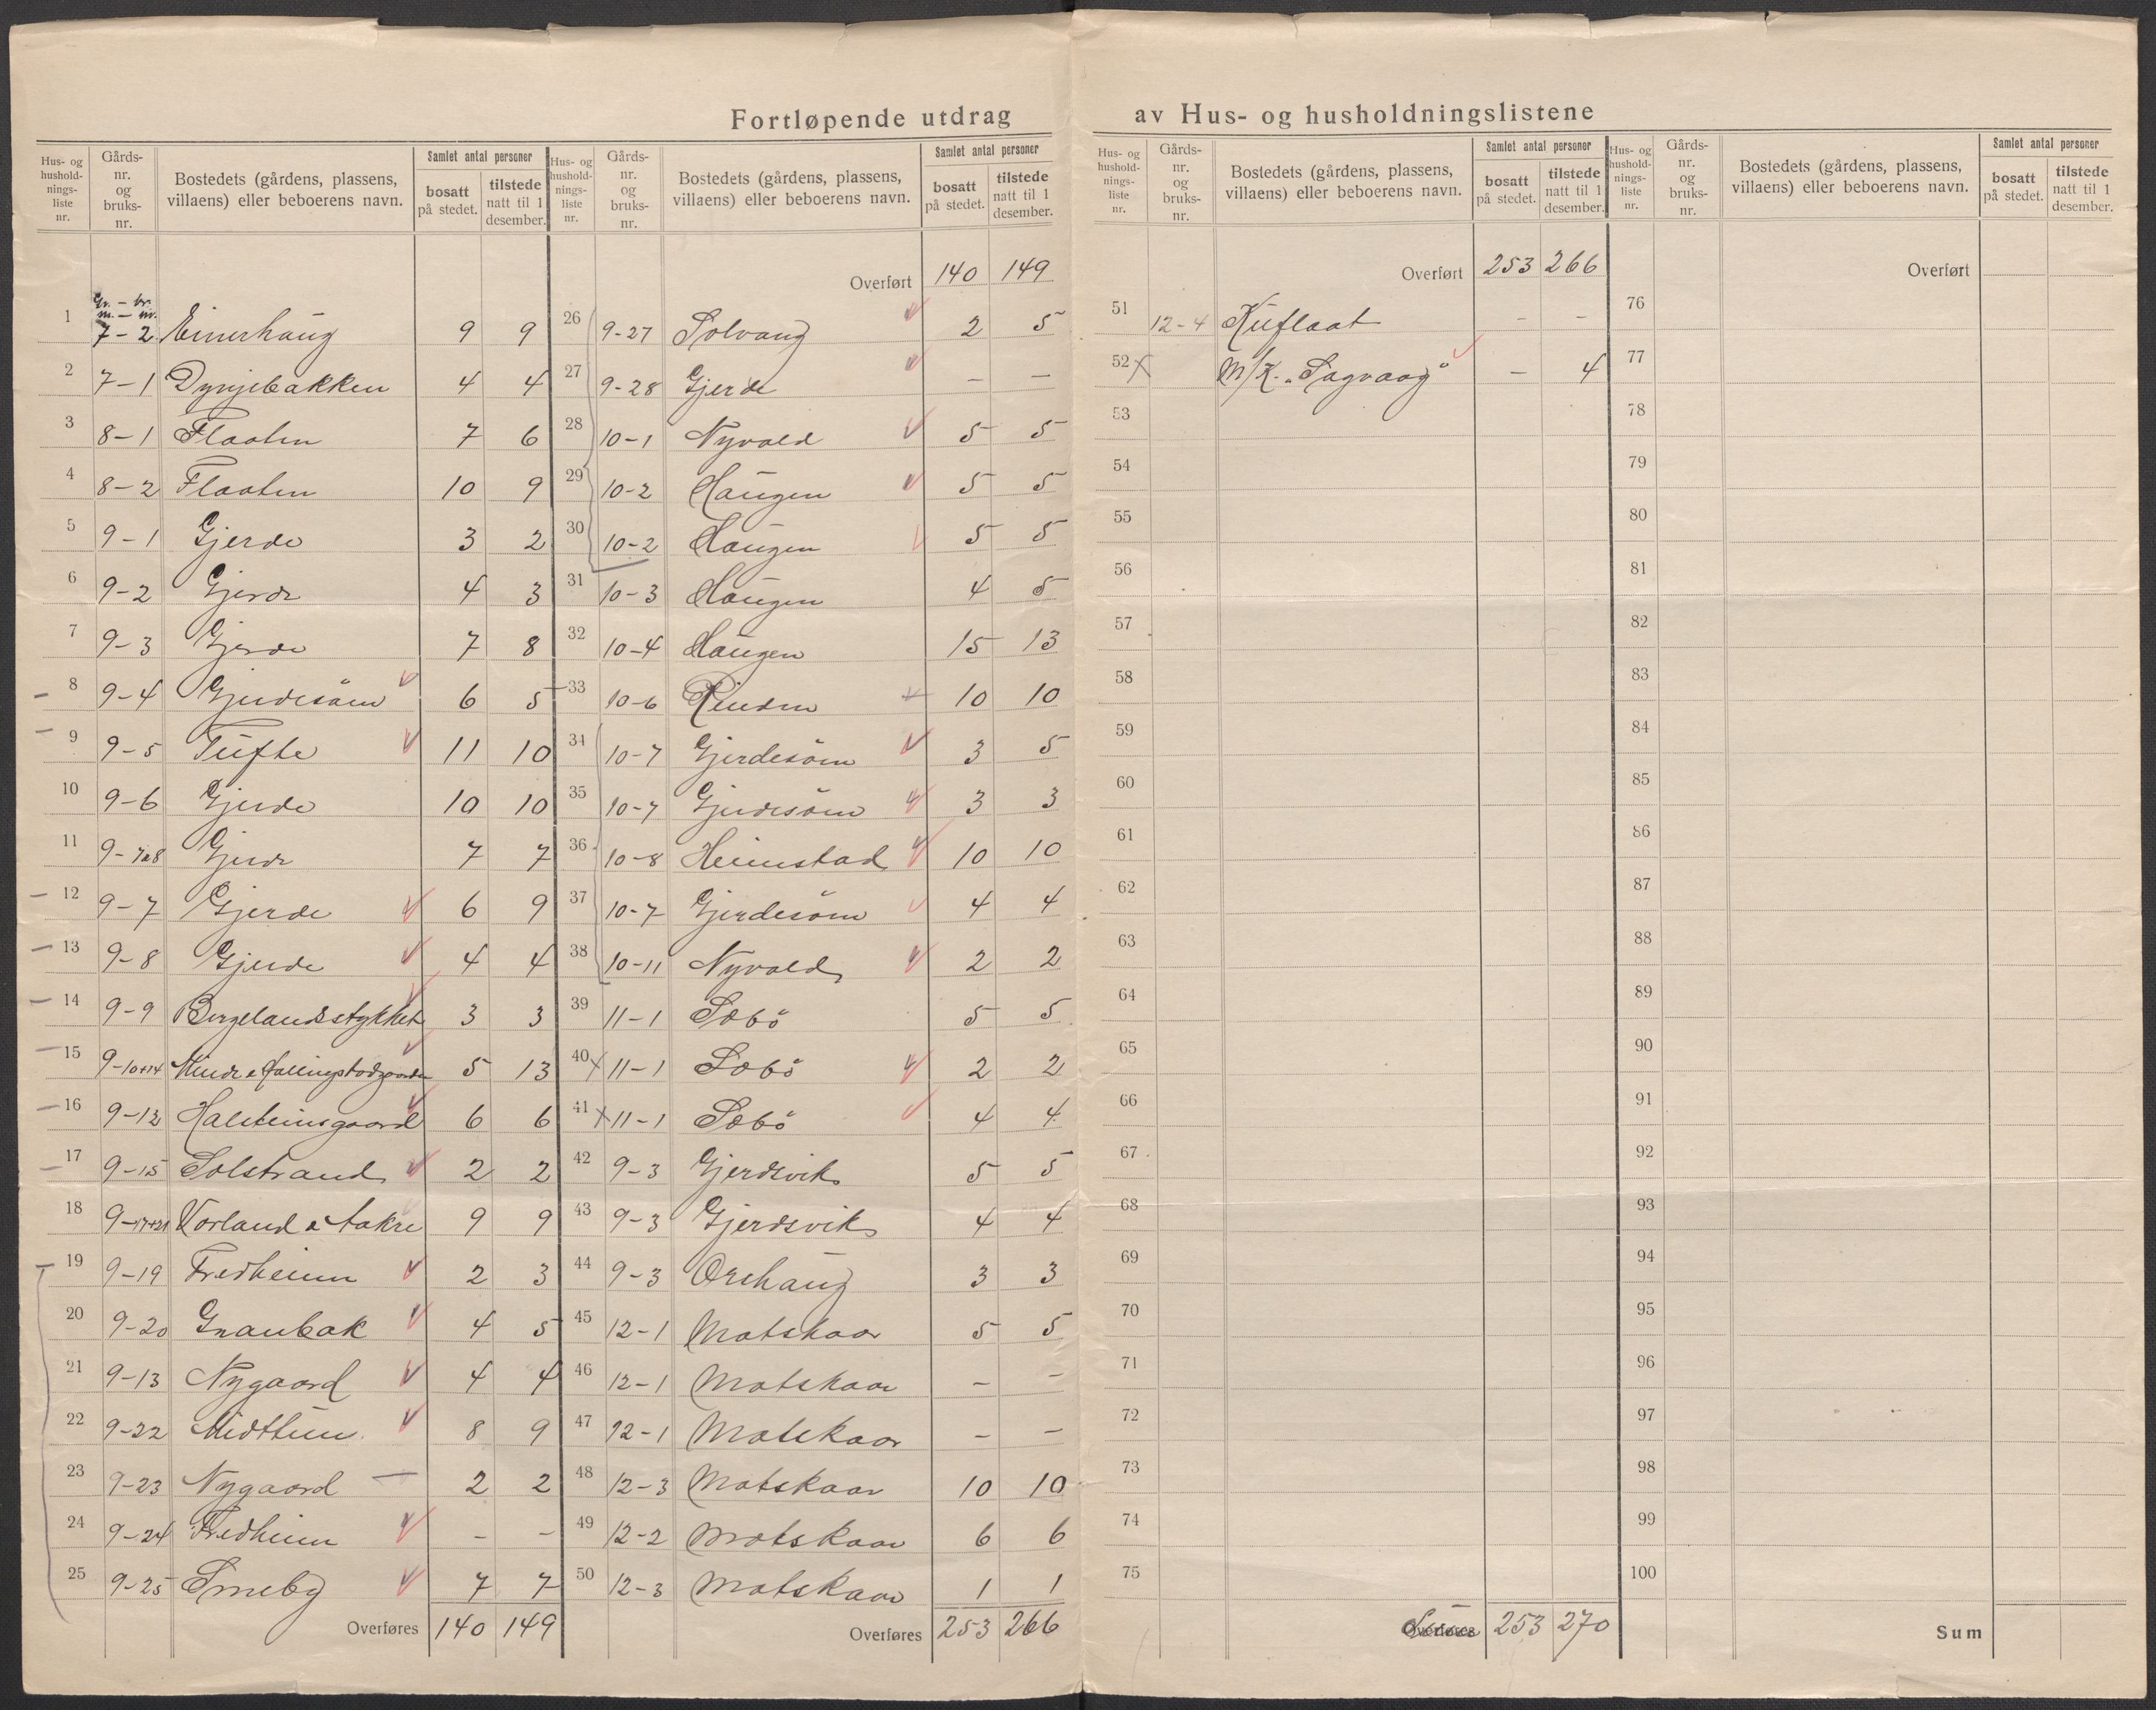 Fortløpende utdrag av Hus- og husholdningslistene
Hus- og husholdnings-liste nr. Gårds-nr. og bruks-nr. Bostedets (gårdens, plassens, villaens) eller beboerens navn. Samlet antal personer bosatt på stedet. tilstede natt til 1 desember.
Gr. – br.
nr. – nr.
1 7–2 Einerhaug 9 9
2 7–1 Dynjebakken 4 4
3 8–1 Flaaten 7 6
4 8–2 Flaaten 10 9
5 9–1 Gjerde 3 2
6 9–2 Gjerde 4 3
7 9–3 Gjerde 7 8
8 9–4 Gjerdesöm 6 5
9 9–5 Tufte 11 10
10 9–6 Gjerde 10 10
11 9–7a8 Gjerde 7 7
12 9–7 Gjerde 6 9
13 9–8 Gjerde 4 4
14 9–9 Bergelandsstykket 3 3
15 9–10+14 Minde 5 13
16 9–12 Halsteinsgaard 6 6
17 9–15 Solstrand 2 2
18 9–17+21 Vorland & Aakre 9 9
19 9–19 Fredheim 2 3
20 9–20 Granbak 4 5
21 9–13 Nygaard 4 4
22 9–22 Midttun 8 9
23 9–23 Nygaard — 2 2
24 9–24 Fredheim – –
25 9–25 Smeby 7 7
Overføres 140 149
Hus- og husholdnings-liste nr. Gårds-nr. og bruks-nr. Bostedets (gårdens, plassens, villaens) eller beboerens navn. Samlet antal personer bosatt på stedet. tilstede natt til 1 desember.
Overført 140 149
26 9-27 Solvang 2 5
27 9-28 Gjerde – –
28 10-1 Nyvold 5 5
29 10-2 Haugen 5 5
30 10-2 Haugen 5 5
31 10-3 Haugen 4 5
32 10-4 Haugen 15 13
33 10-6 Rinden 10 10
34 10-7 Gjerdesöm 3 5
35 10-7 Gjerdesöm 3 3
36 10-8 Heimstad 10 10
37 10-7 Gjerdesöm 4 4
38 10-11 Nyvold 2 2
39 11–1 Sæbö 5 5
40 x 11–1 Sæbö 2 2
41 x 11–1 Sæbö 4 4
42 9–3 Gjerdsvik 5 5
43 9–3 Gjerdsvik 4 4
44 9–3 Orehaug 3 3
45 12–1 Matskaar 5 5
46 12–1 Matskaar – –
47 12–1 Matskaar – –
48 12–3 Matskaar 10 10
49 12–2 Matskaar 6 6
50 12–3 Matskaar 1 1
Overføres 253 266
Hus- og husholdnings-liste nr. Gårds-nr. og bruks-nr. Bostedets (gårdens, plassens, villaens) eller beboerens navn. Samlet antal personer bosatt på stedet. tilstede natt til 1 desember.
Overført 253 266
51 12–4 Kuflaat – –
52 x M/K. „Sagvaag" – 4
53
54
55
56
57
58
59
60
61
62
63
64
65
66
67
68
69
70
71
72
73
74
75
Overføres 253 270
Hus- og husholdnings-liste nr. Gårds-nr. og bruks-nr. Bostedets (gårdens, plassens, villaens) eller beboerens navn. Samlet antal personer bosatt på stedet. tilstede natt til 1 desember.
Overført
76
77
78
79
80
81
82
83
84
85
86
87
88
89
90
91
92
93
94
95
96
97
98
99
100
Sum